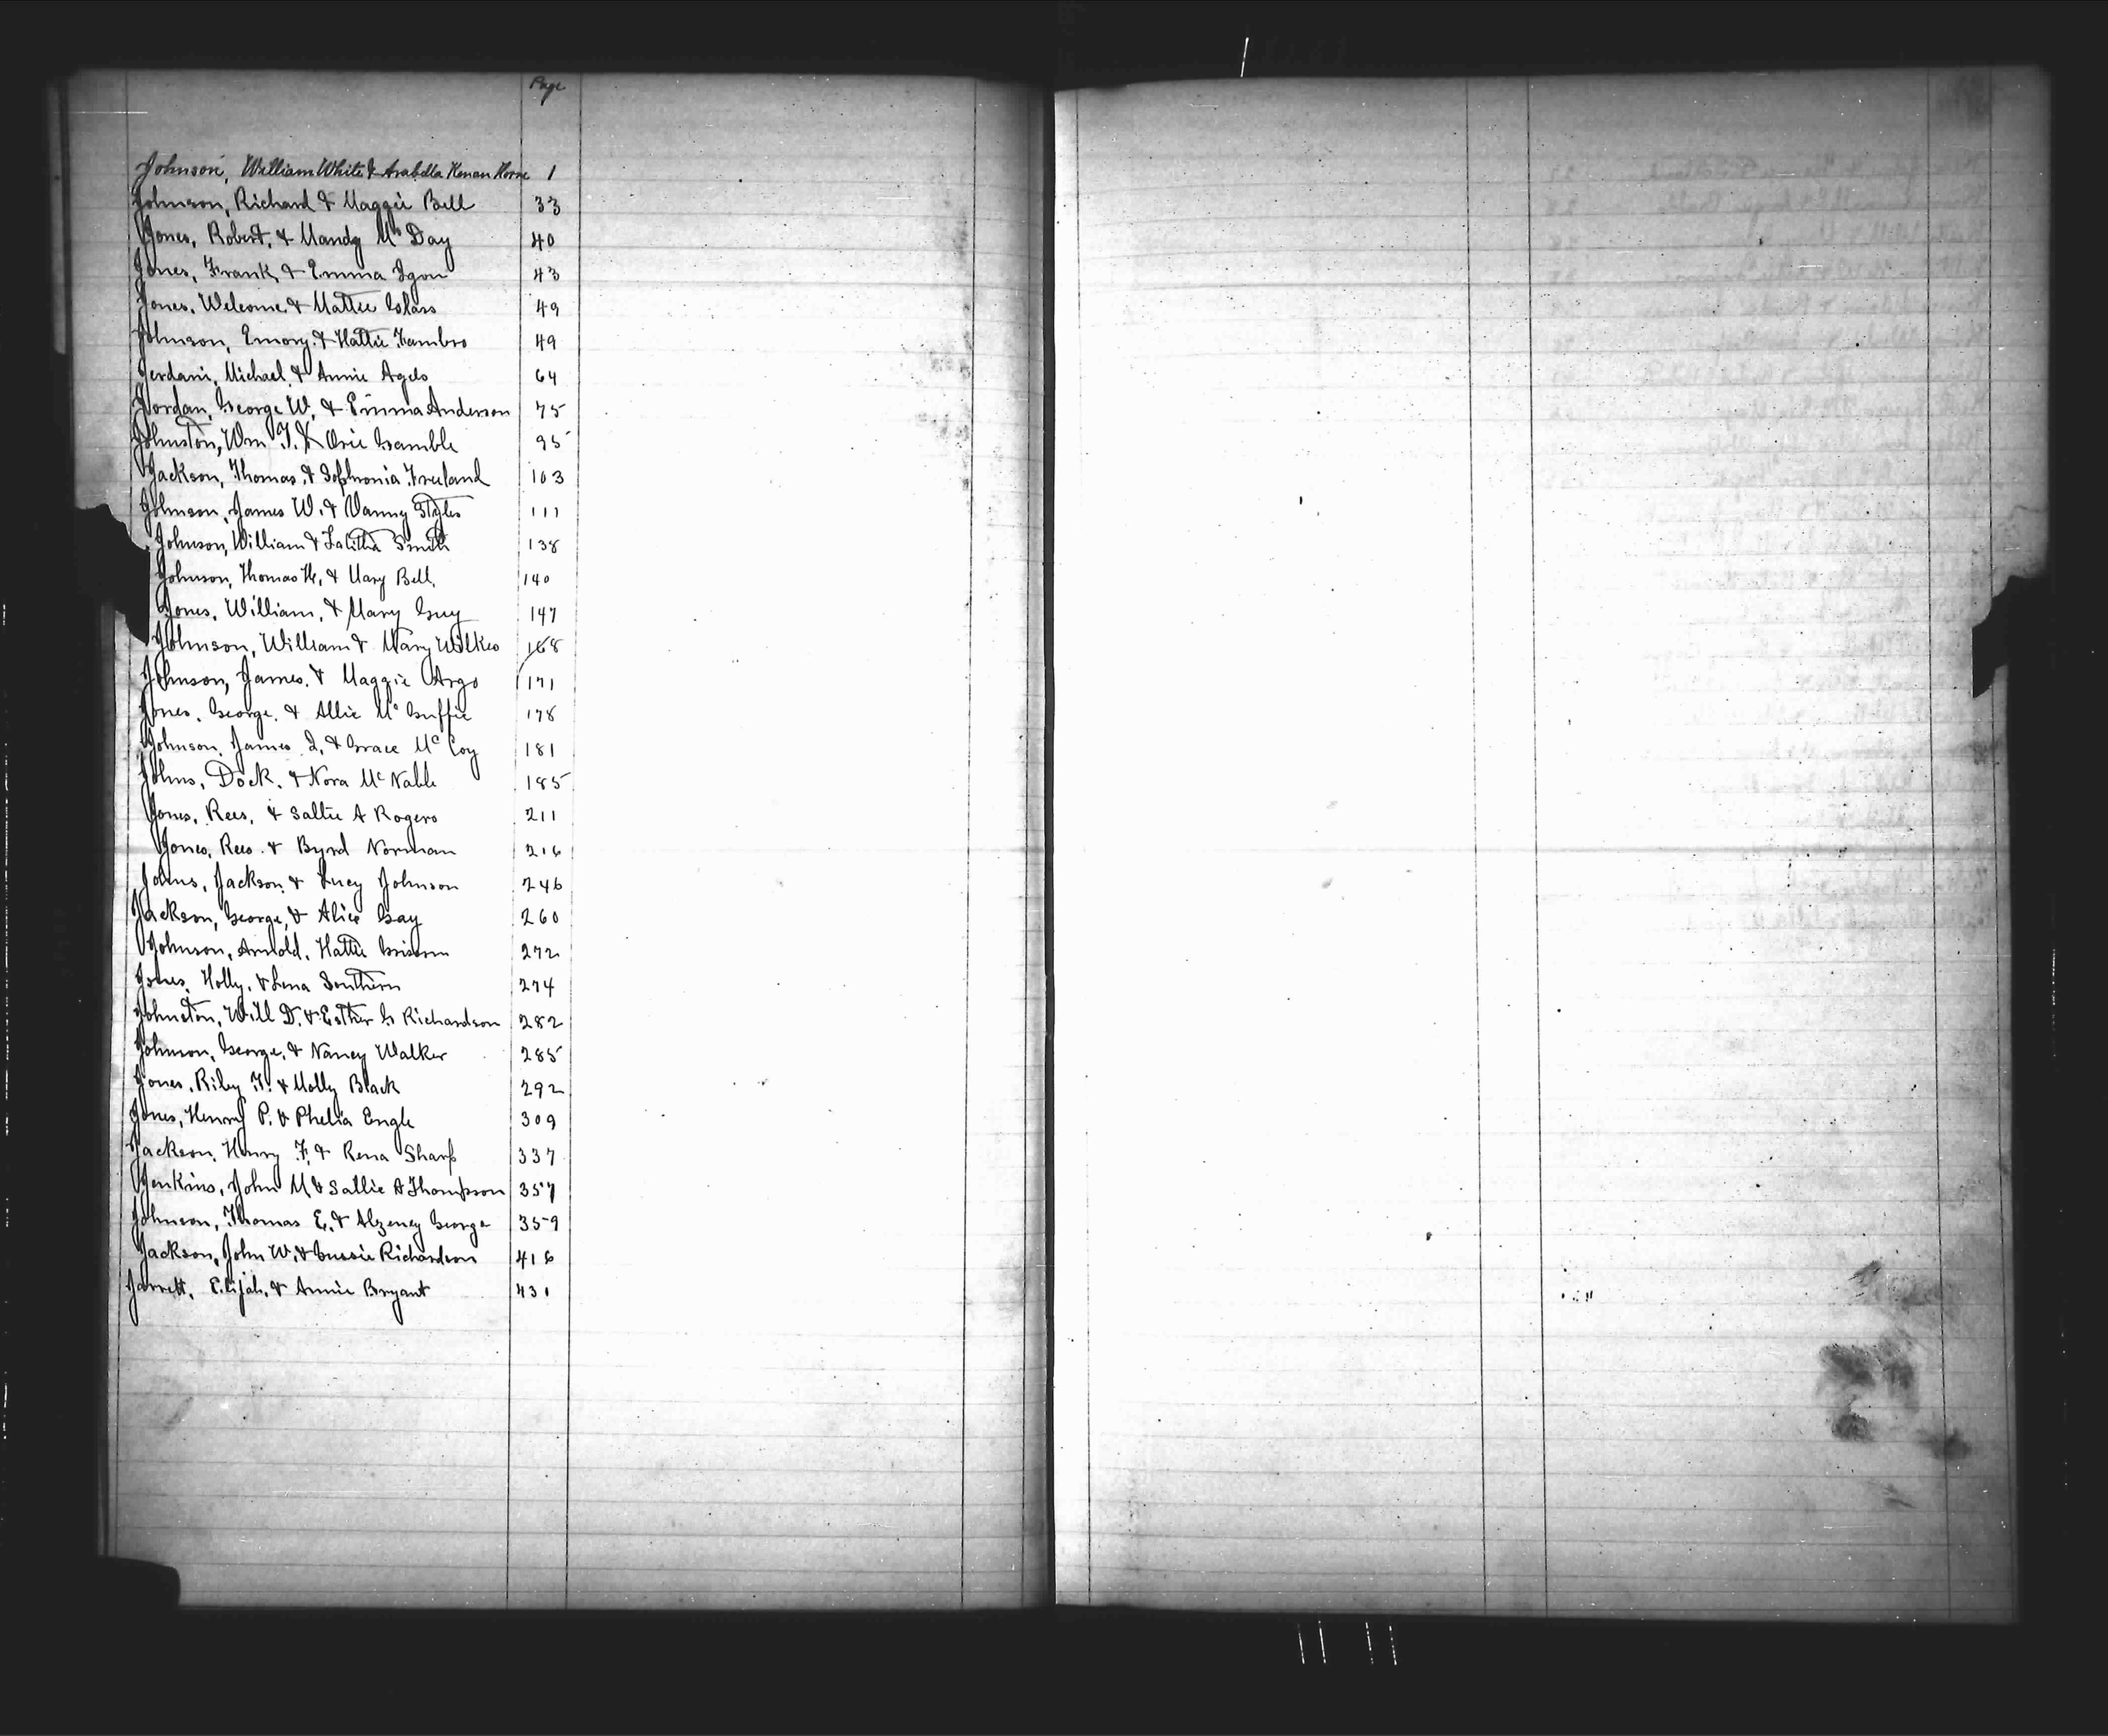 Page
Johnson, William White & Arabella Kenan Horne 1
Johnson, Richard & Maggie Bell 33
Jones, Robert, & Mandy Mc Day 40
Jones, Frank, & Emma Igon 43
Jones, Welcome & Mattie Glass 49
Johnson, Emory, & Hattie Fambro 49
Jerdani, Michael, & Annie Agelo 64
Jordan, George W, & Emma Anderson 75
Johnston, Wm T. & Orie Gamble 95
Jackson, Thomas, & Sophronia Freeland 103
Johnson, James W. & Vanny Styles 111
Johnson, William & Talitha Smith 138
Johnson, Thomas H, & Mary Bell 140
Jones, William, & Mary Guy 147
Johnson, William & Mary Wilkes 168
Johnson, James, & Maggie Argo 171
Jones, George, & Allie Mc Guffie 178
Johnson, James I, & Grace Mc Coy 181
Johns, Dock, & Nora Mc Nabb 185
Jones, Rees, & Sallie A Rogers 211
Jones, Rees & Byrd Norman 216
Johns, Jackson, & Lucy Johnson 246
Jackson, George, & Alice Gay 260
Johnson, Arnold, Hattie 272
Jones, Holly, & Lena Southern 274
Johnston, Will D. & Esther G Richardson 282
Johnson, George, & Nancy Walker 285
Jones, Riley F. & Molly Black 292
Jones, Henry P. & Phelia Engle 309
Jackson, Henry F, & Rena Sharp 337
Jenkins, John M & Sallie A Thompson 357
Johnson, Thomas E, & Alzeney George 359
Jackson, John W. & Gussie Richardson 416
Jarrett, Elijah, & Annie Bryant 431